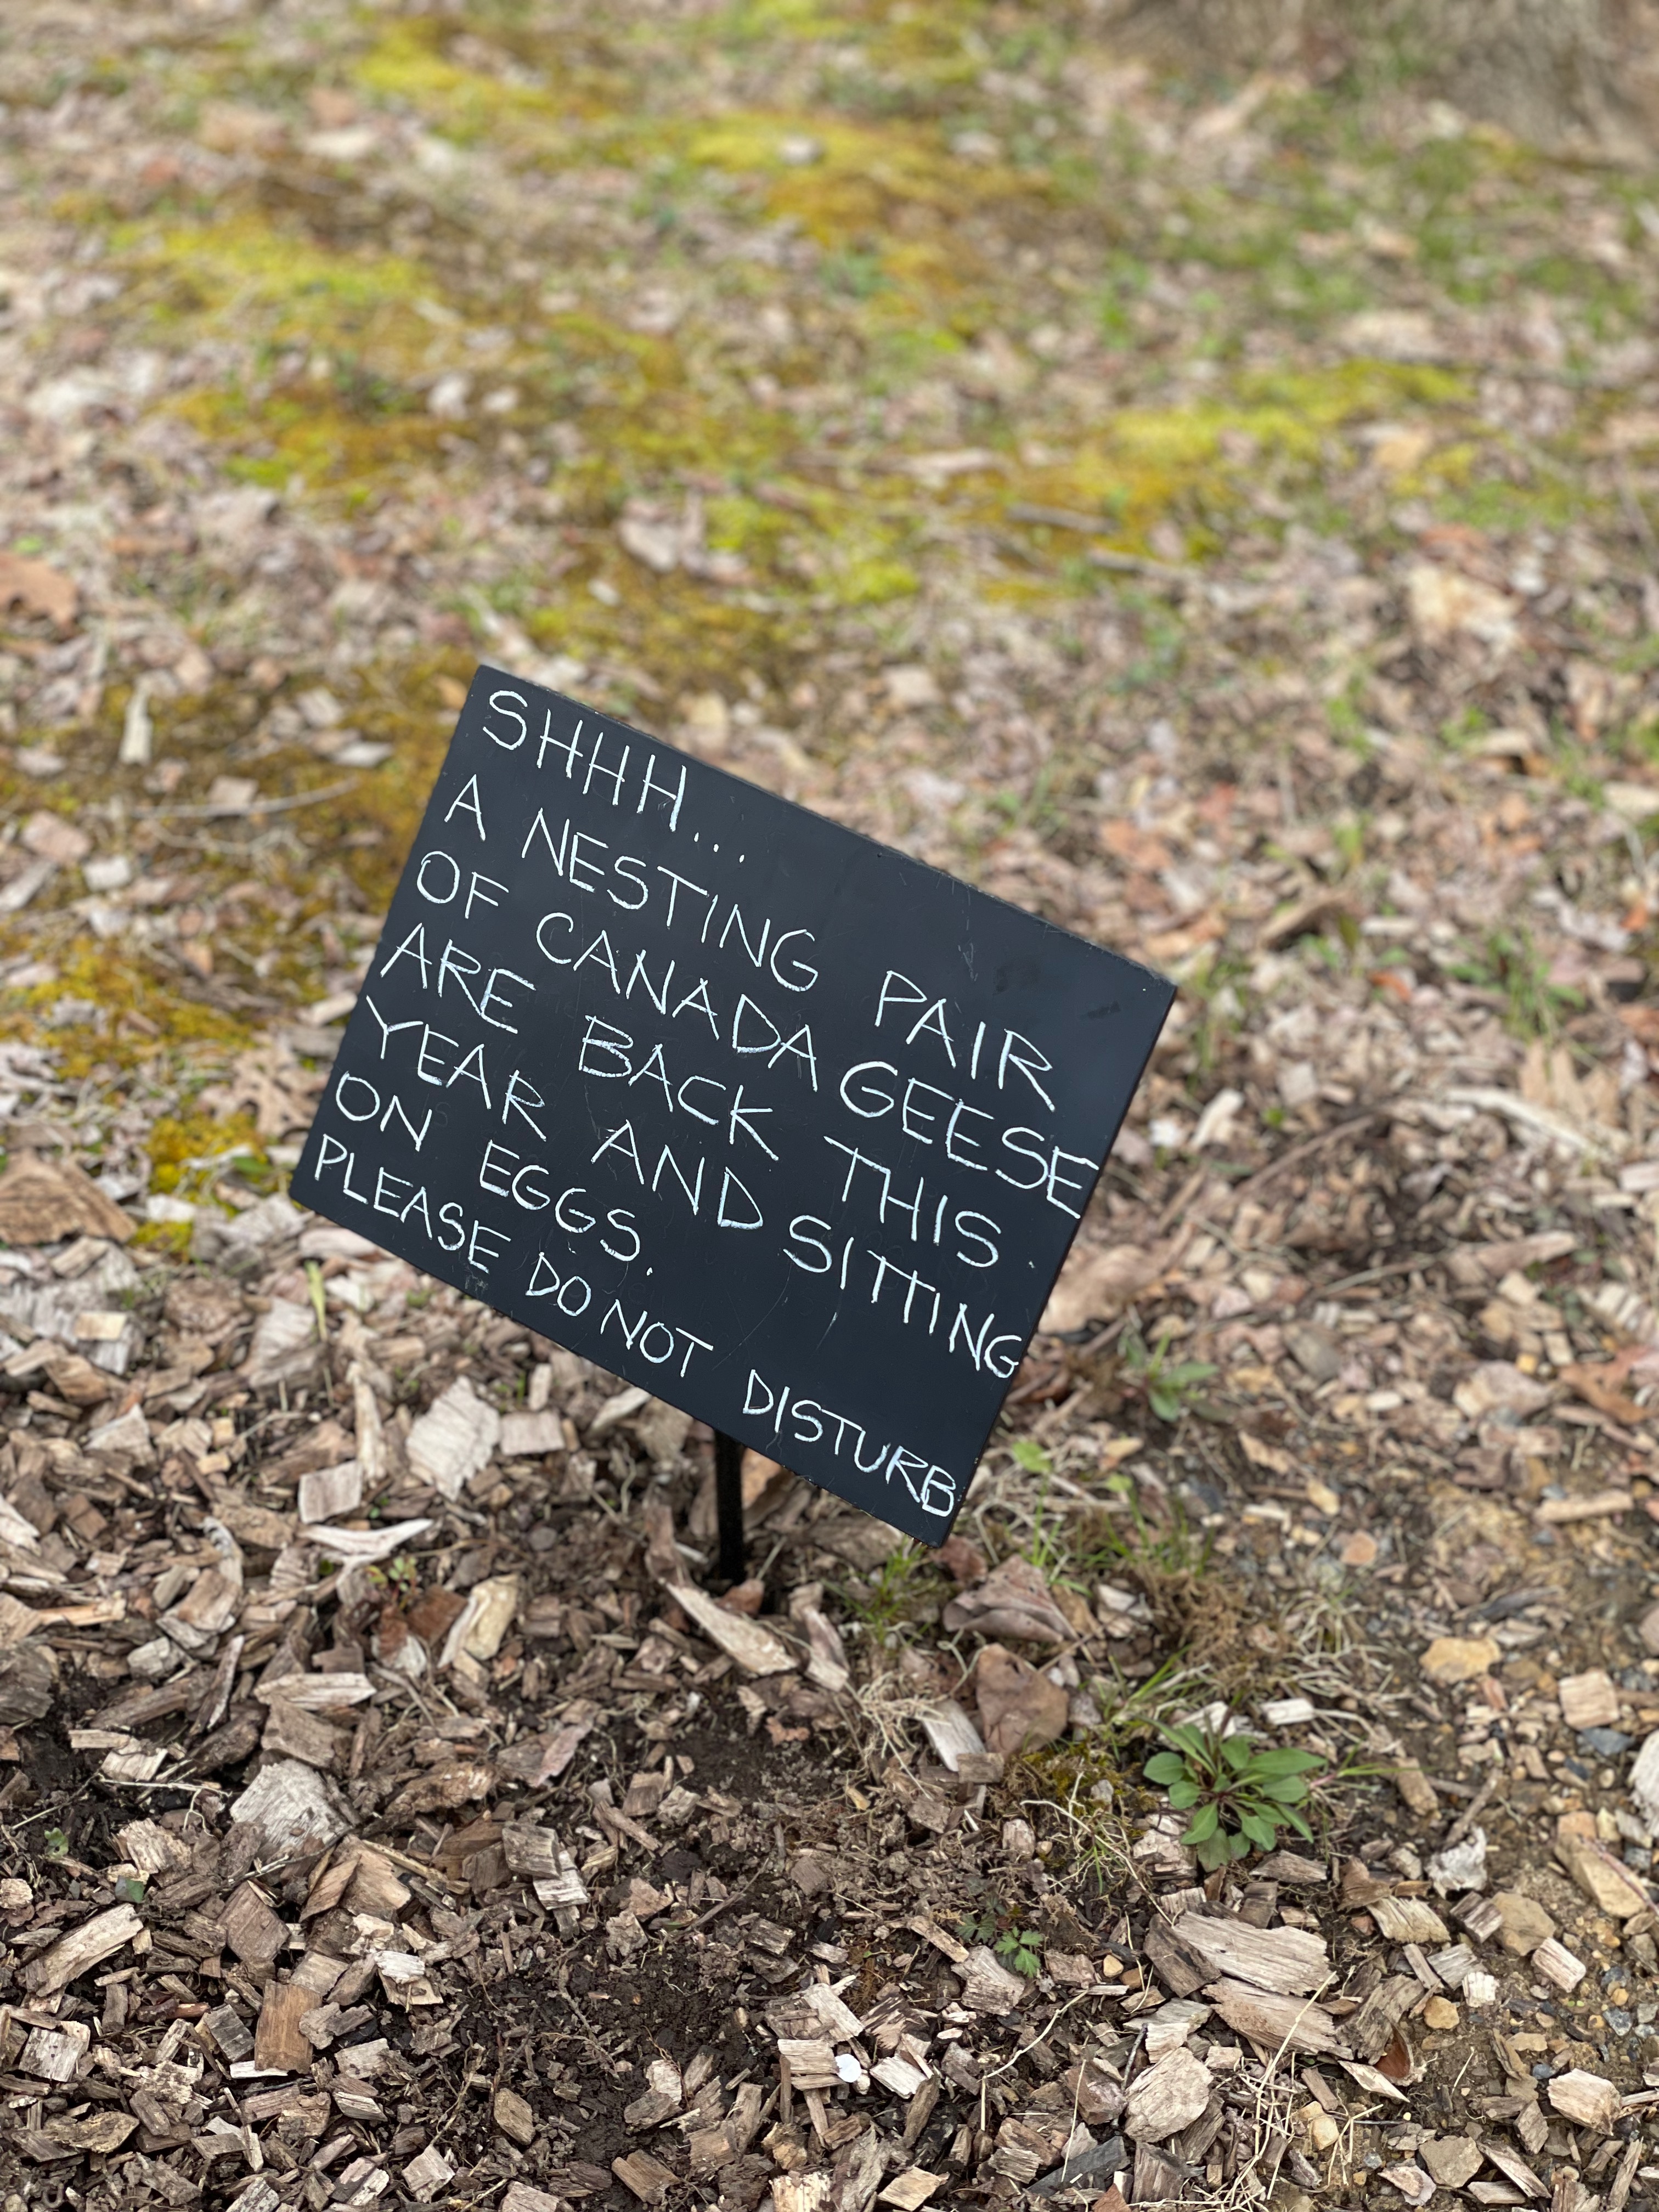 SHHH...
A NESTING PAIR
OF CANADA GEESE
ARE BACK THIS
YEAR AND SITTING
ON EGGS.
PLEASE DO NOT DISTURB